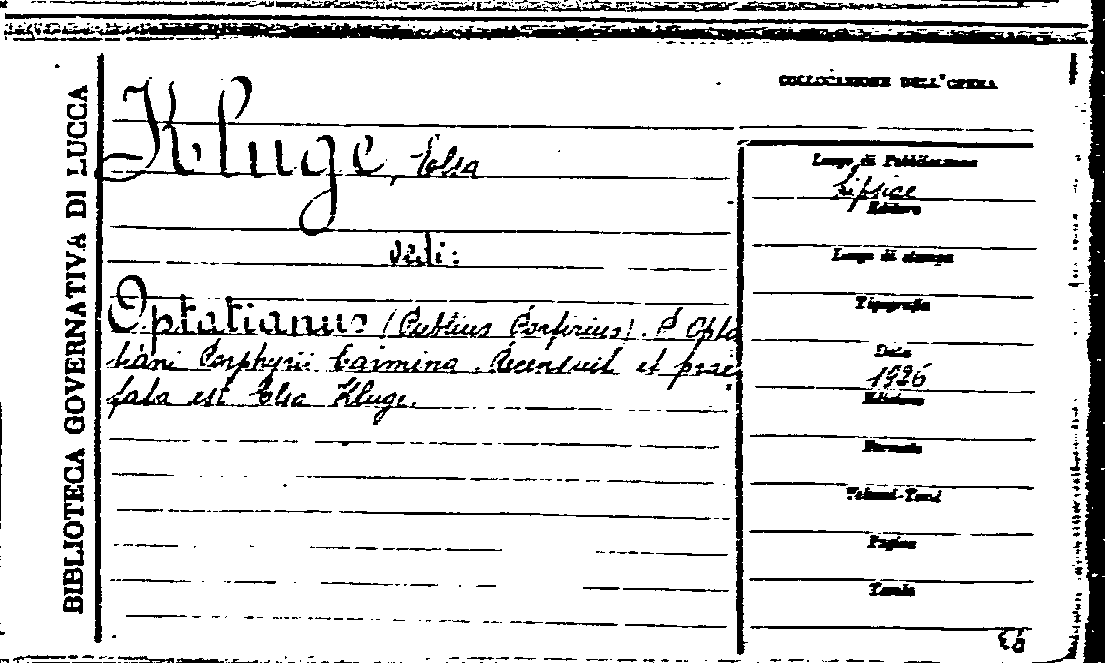 BIBLIOTECA GOVERNATIVA DI LUCCA
COLLOCAZIONE DELL'OPERA
Kluge, Elsa
vedi:
Optatianus (Publius Porfirius). P. Opta
tiani Porphyrii Carmina. Recensuit et prae
fata est Elsa Kluge.
Luogo di Pubblicazione
Lipsiae
Editore
Luogo di stampa
Tipografia
Data
1926
Edizione
Formato
Volumi-Tomi
Pagine
Tavole